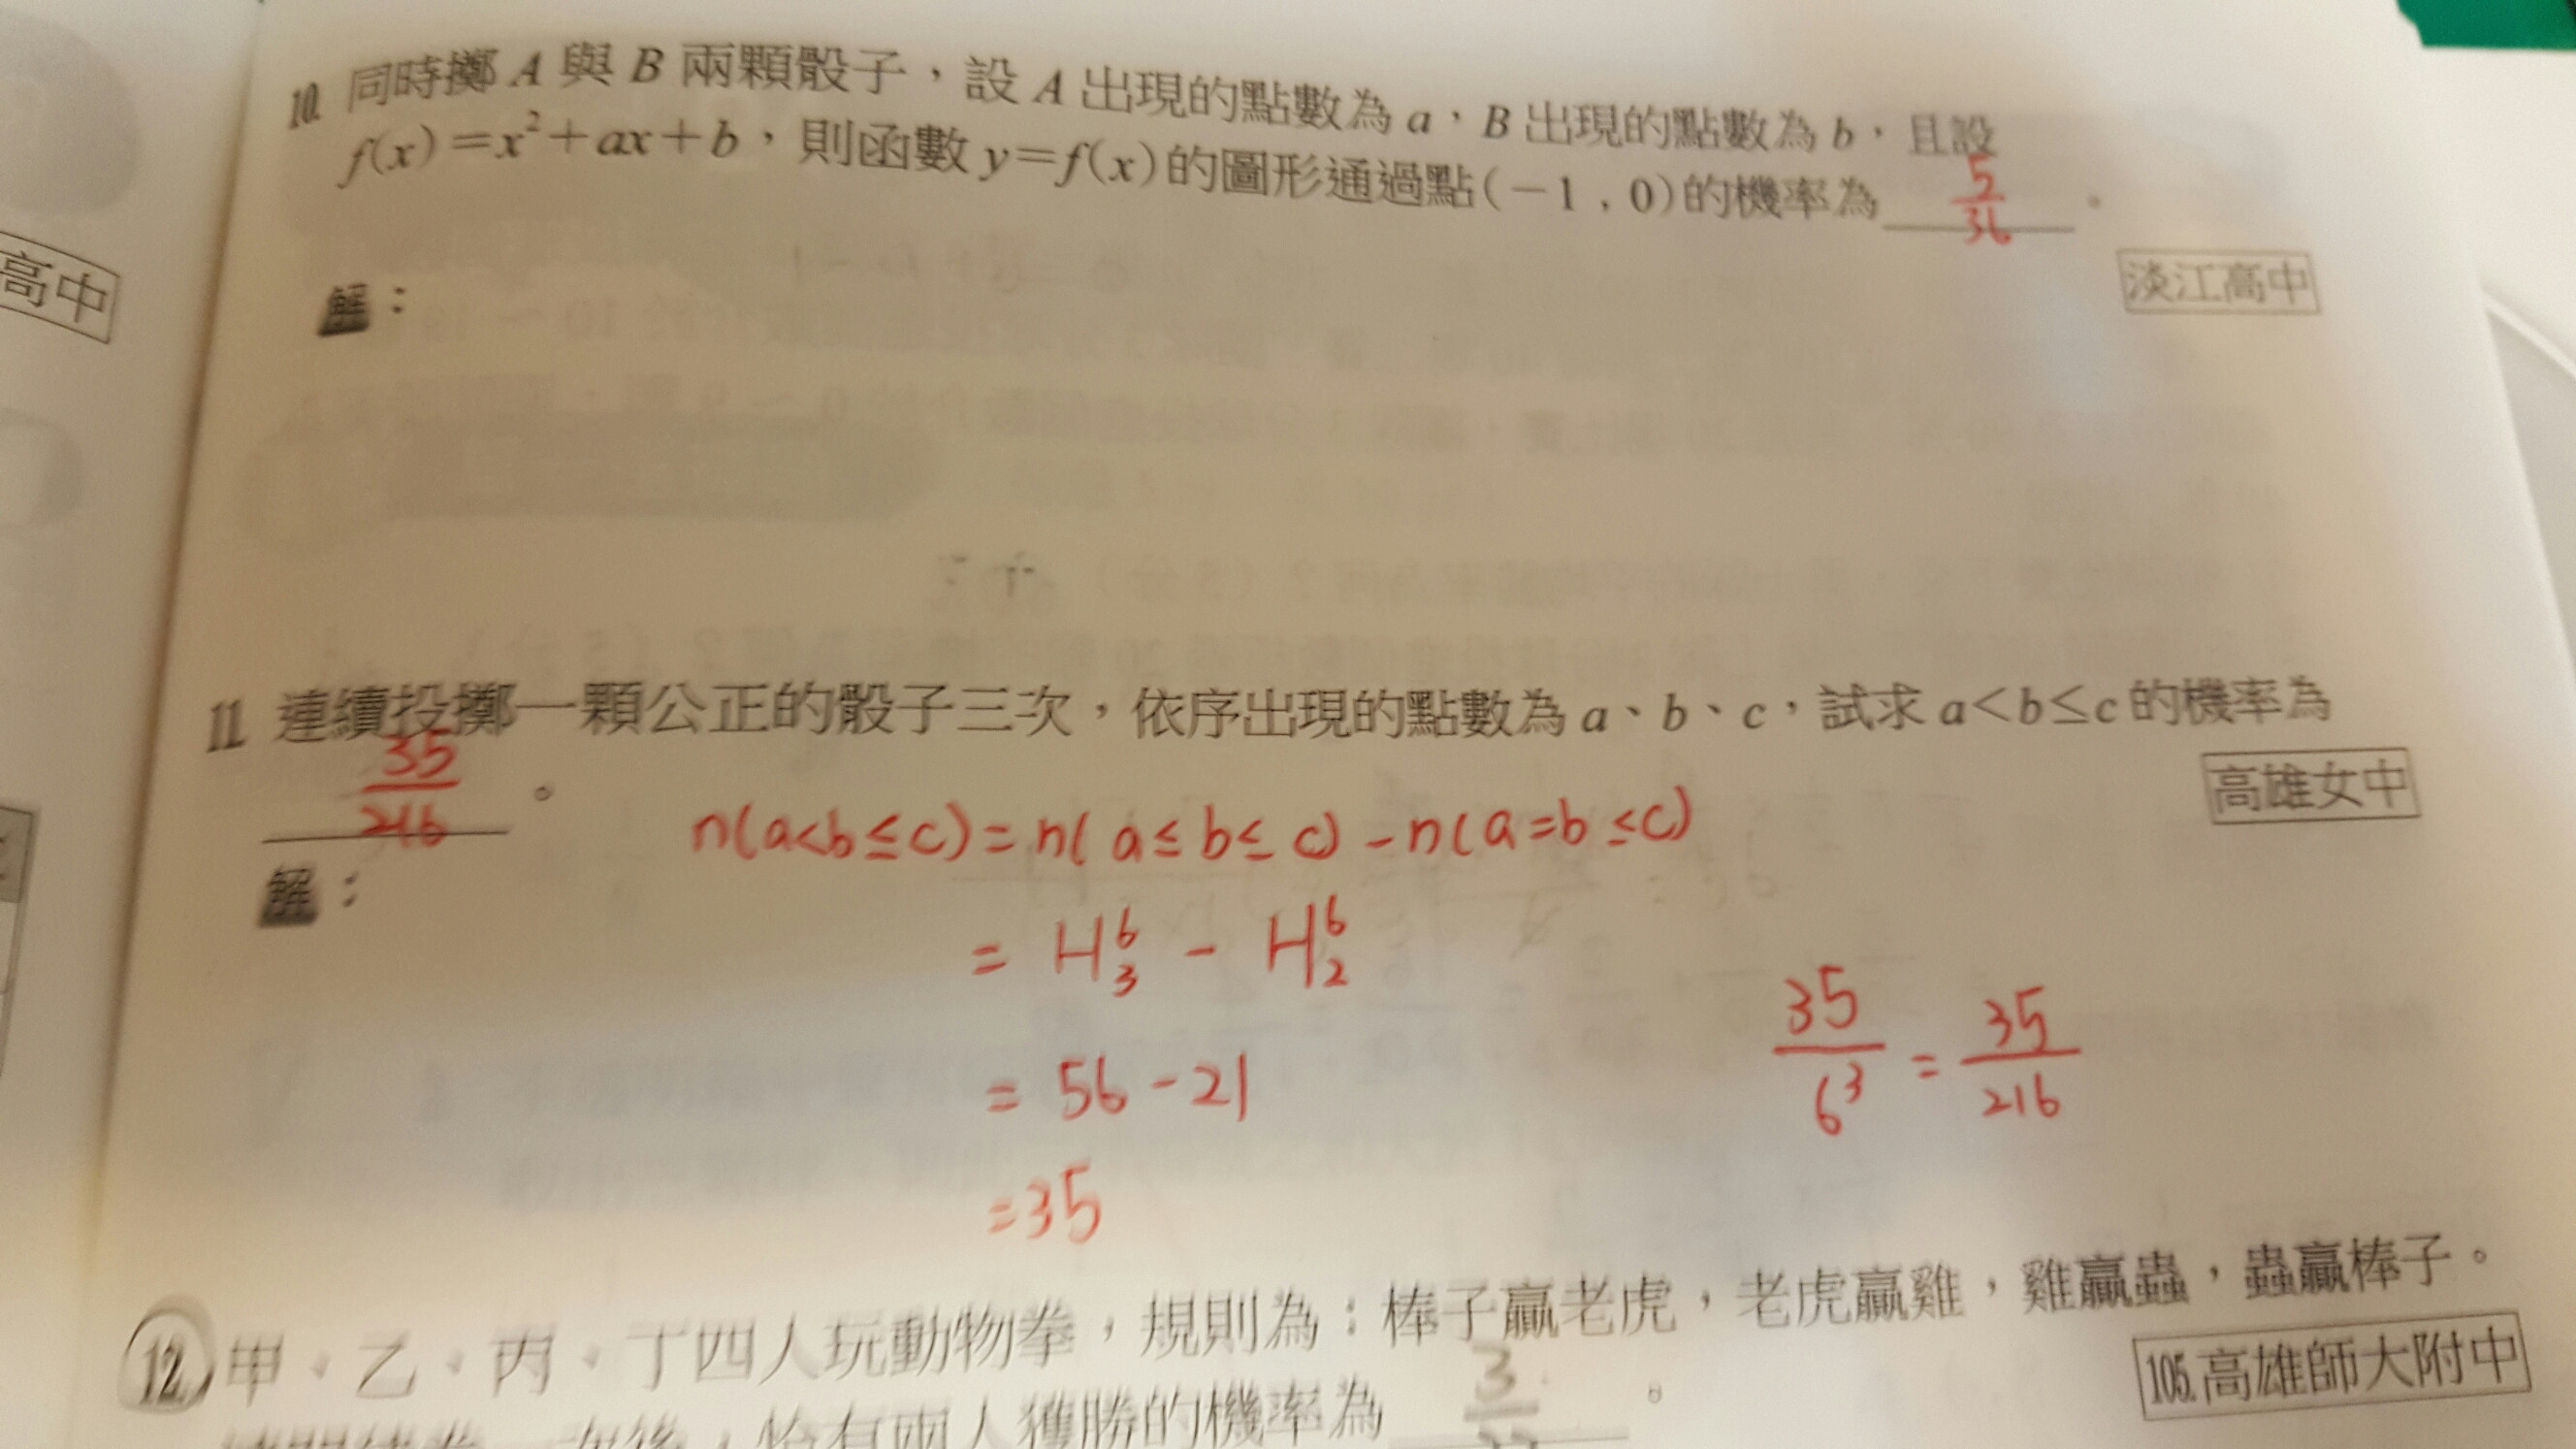 10. 同時擲 A 與 B 兩顆骰子，設 A 出現的點數為 a，B 出現的點數為 b，且設
f(x)=x²+ax+b，則函數 y=f(x)的圖形通過點(-1,0)的機率為 5/36 。
高中
淡江高中
解：
11. 連續投擲一顆公正的骰子三次，依序出現的點數為 a、b、c，試求 a<b≤c 的機率為
35/216 。
高雄女中
n(a<b≤c)=n(a≤b≤c)-n(a=b≤c)
解：
= H⁶₃ - H⁶₂
35/6³ = 35/216
= 56-21
=35
12. 甲、乙、丙、丁四人玩動物拳，規則為：棒子贏老虎，老虎贏雞，雞贏蟲，蟲贏棒子。
105.高雄師大附中
次後，恰有兩人獲勝的機率為 。